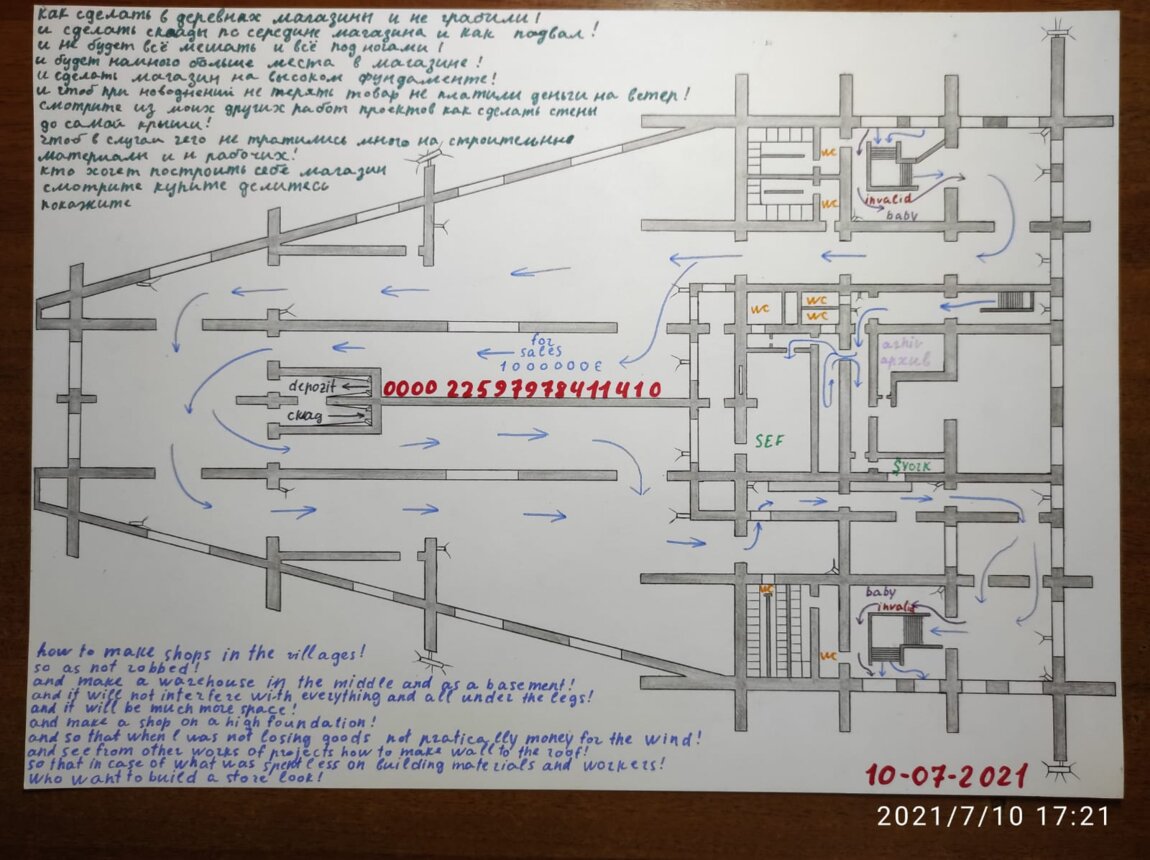 как сделать в деревнях магазины и не грабили!
и сделать скады по середине магазина и как подвал!
и не будет всё мешать и всё под ногами!
и будет намного больше места в магазине!
и сделать магазин на высоком фундаменте!
и чтоб при новоднений не терять товар не платили деньги на ветер!
смотрите из моих других работ проектов как сделать стены
до самой крыши!
чтоб в случаи чего не тратились много на строительные
материалы и н рабочих!
кто хочет построить себе магазин
смотрите купите делитесь
покажите
wc
wc
invalid
baby
wc
wc
wc
arhiv
архив
for
sales
1000000€
depozit
0000 22597978411410
скад
SEF
Svork
baby
invalid
wc
wc
how to make shops in the villages!
so as not robbed!
and make a warehouse in the middle and as a basement!
and it will not interfere with everything and all under the legs!
and it will be much more space!
and make a shop on a high foundation!
and so that when I was not losing goods not pratically money for the wind!
and see from other works of projects how to make wall to the roof!
so that in case of what was spent less on building materials and workers!
who want to build a store look!
10-07-2021
2021/7/10 17:21